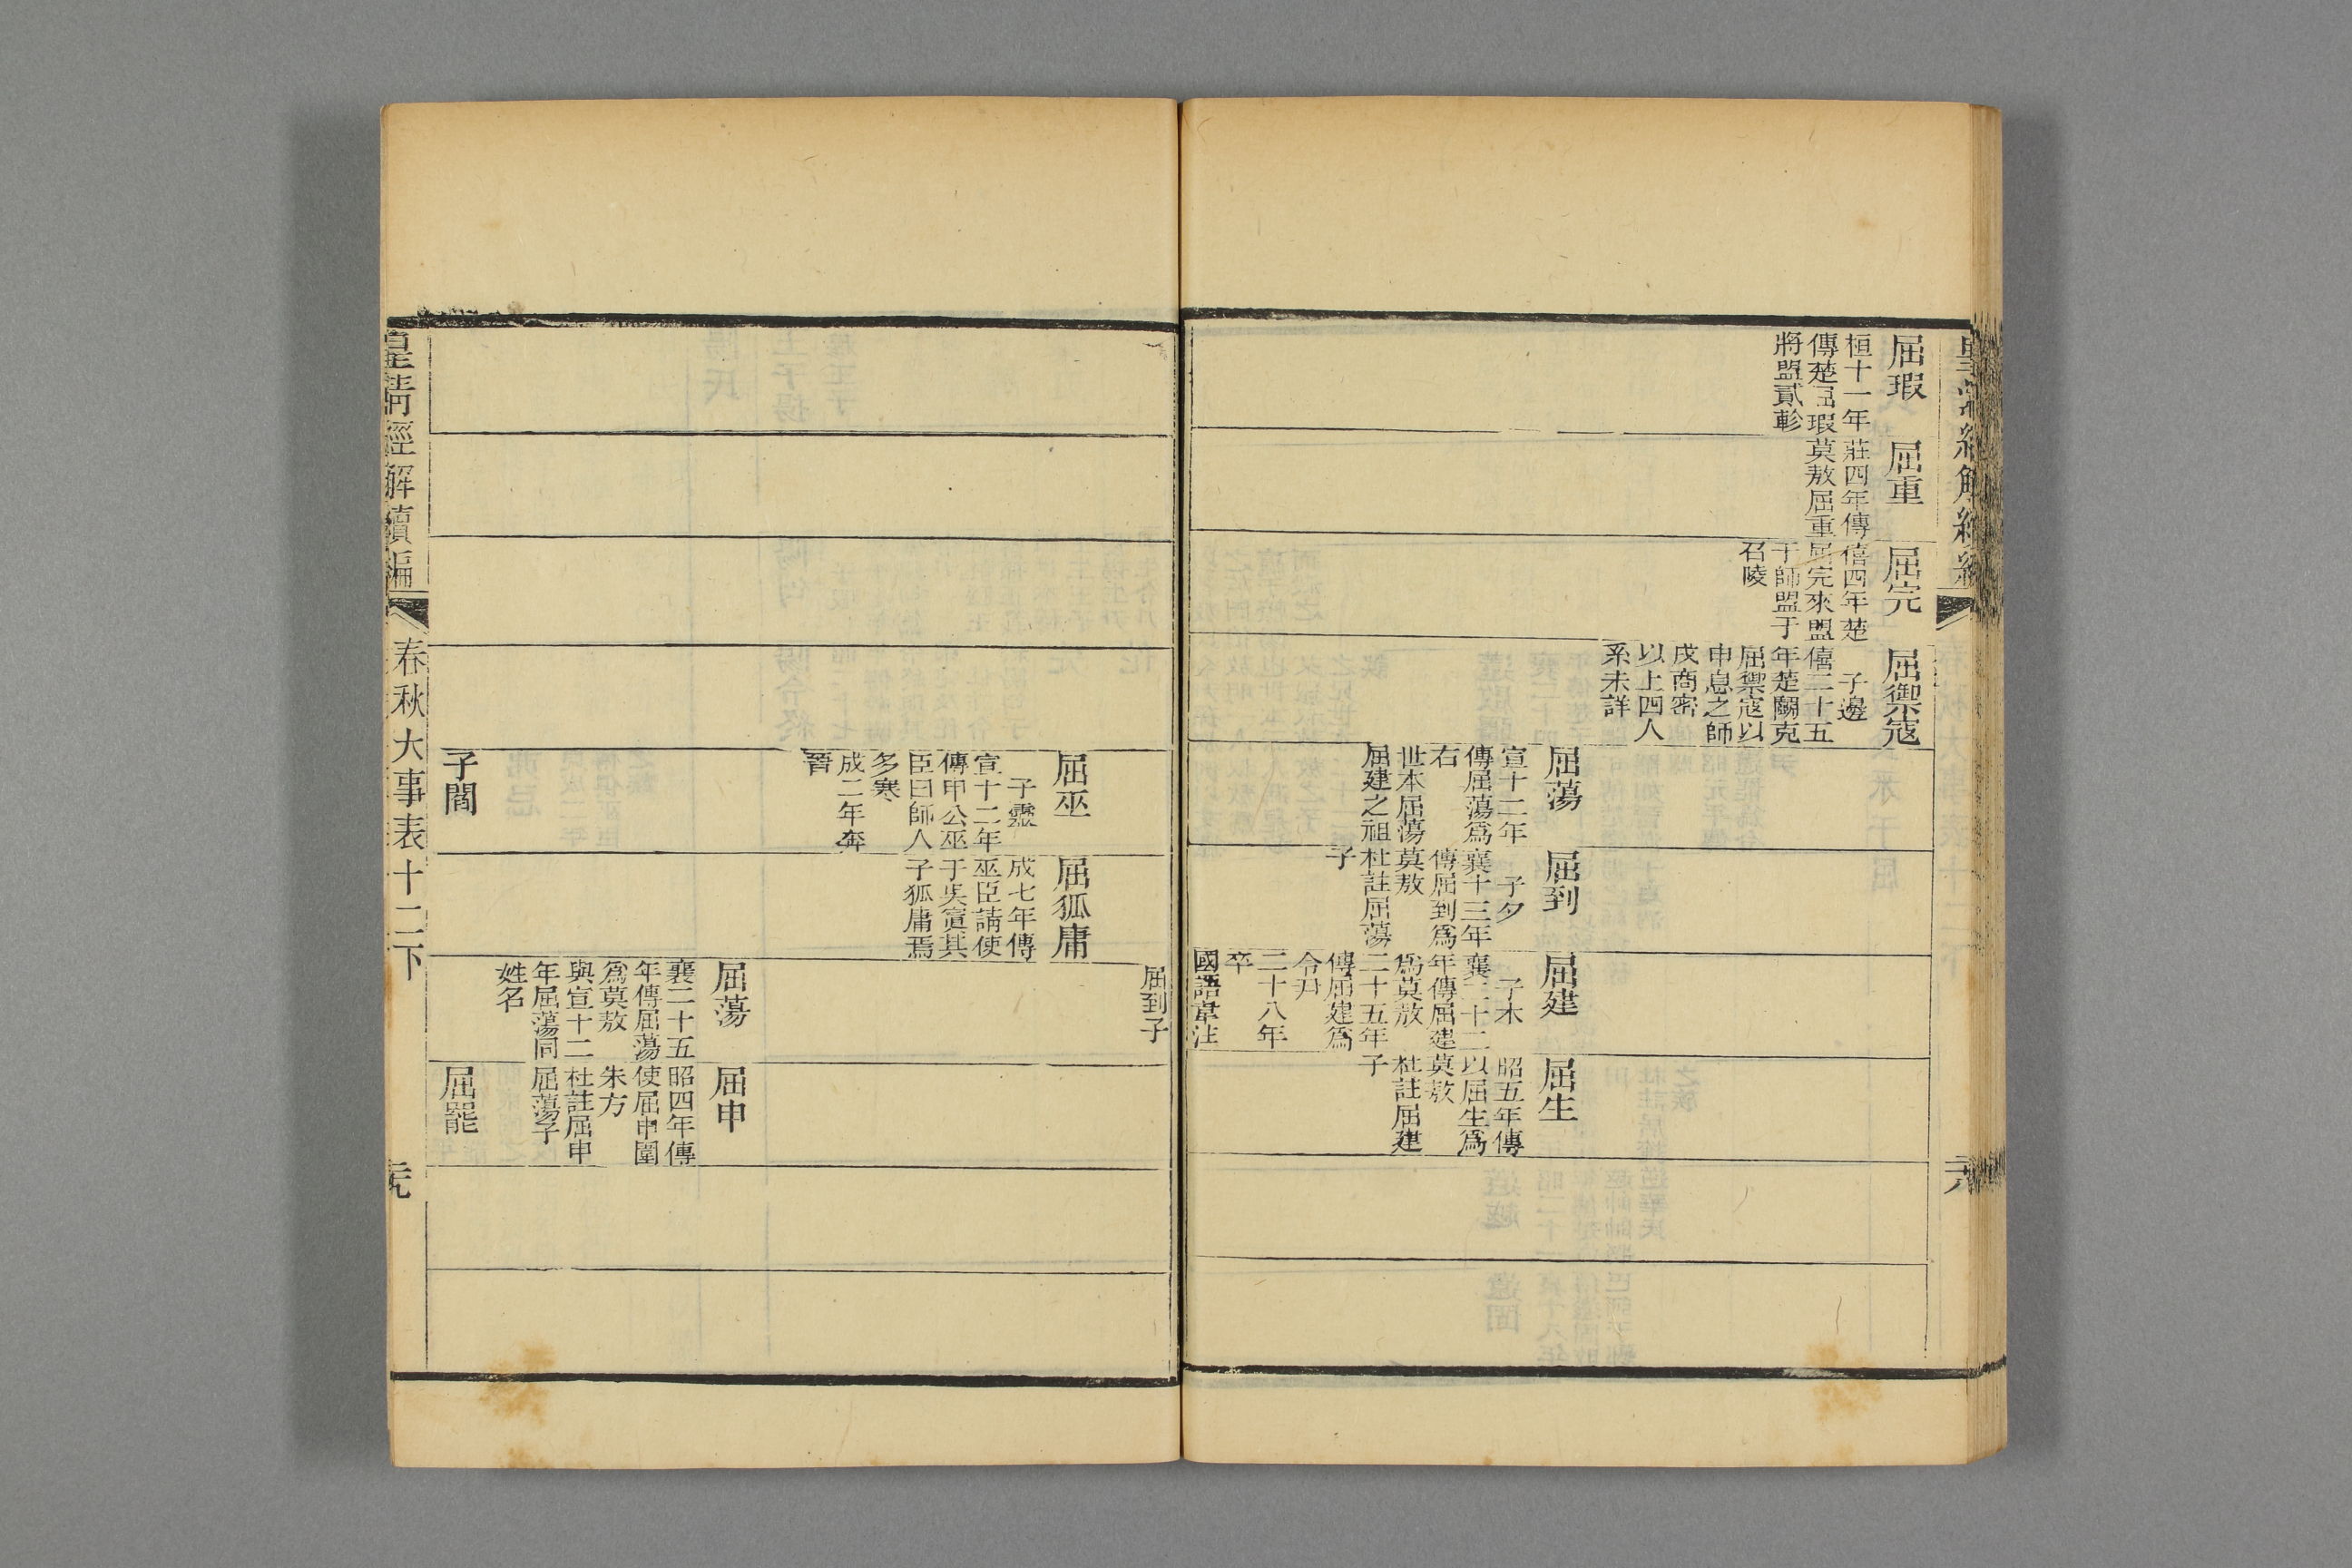 屈瑕
桓十一年
傳楚屈瑕
將盟貳軫
屈重
莊四年傳
莫敖屈重
屈完
僖四年楚
屈完來盟
于師盟于
召陵
屈禦寇
子邊
僖二十五
年楚鬭克
屈禦寇以
申息之師
戍商密
以上四人
系未詳
屈蕩
宣十二年
傳屈蕩爲
右
世本屈蕩
屈建之祖
屈到
子夕
襄十三年
傳屈到爲
莫敖
杜註屈蕩
子
屈建
子木
襄二十二
年傳屈建
爲莫敖
二十五年
傳屈建爲
令尹
二十八年
卒
國語韋注
屈生
昭五年傳
以屈生爲
莫敖
杜註屈建
子
屈到子
屈巫
子靈
宣十二年
傳申公巫
臣曰師人
多寒
成二年奔
晉
屈狐庸
成七年傳
巫臣請使
于吳寘其
子狐庸焉
屈蕩
襄二十五
年傳屈蕩
爲莫敖
與宣十二
年屈蕩同
姓名
屈申
昭四年傳
使屈申圍
朱方
杜註屈申
屈蕩子
子閻
屈罷
皇淸經解續編
春秋大事表十二下